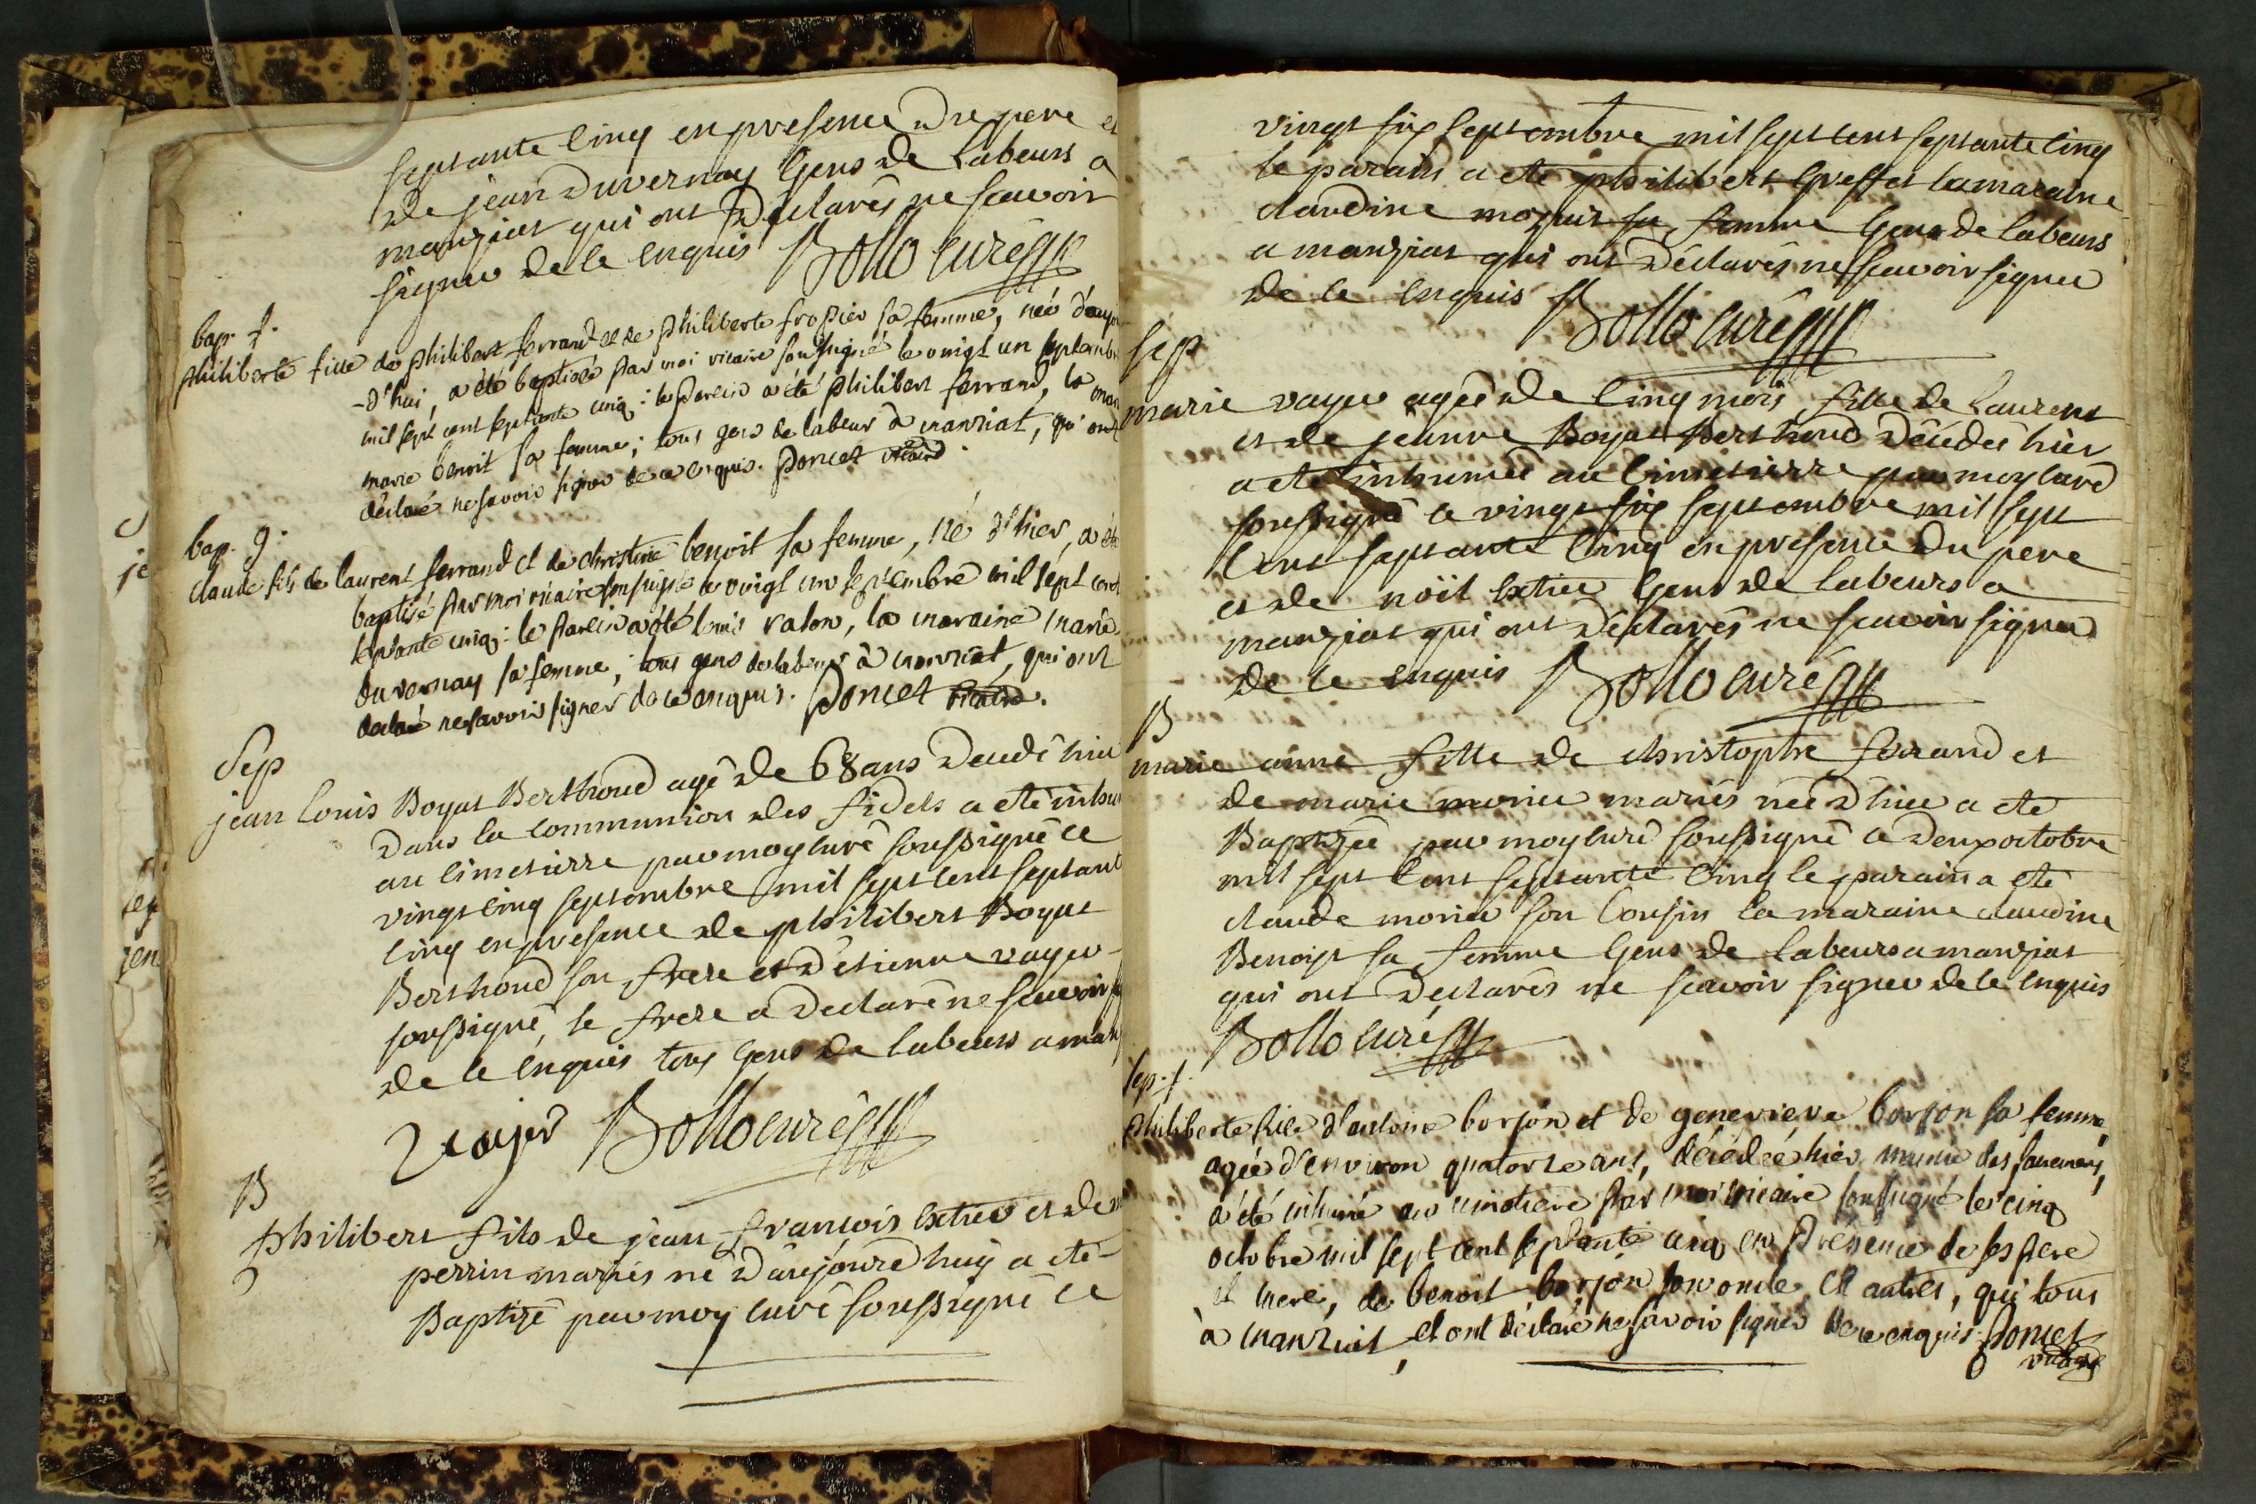 septante cinq en presence du pere et
de jean Duvernay Gens de labeurs a
manziat qui ont Declarés ne scavoir
signer de ce enquis Bollo curé
bap. f.
philiberte fille de philibert ferrand et de philiberte frosier sa femme, née d'aujour
-d'hui, a été baptisée par moi vicaire soussigné le vingt un septembre
mil sept cent septante cinq: le parein a été philibert ferrand, la mar
marie benoit sa femme; tous gens de labeur à manziat, qui ont
déclaré ne savoir signer de ce enquis. poncet vicaire.
bap. g.
claude fils de laurent ferrand et de christine benoit sa femme, né d'hier, a été
baptisé par moi vicaire soussigné le vingt un septembre mil sept cent
septante cinq: le parein a été louis ralon, la maraine marie
duvernay sa femme; tous gens de labeur à manziat, qui ont
declaré ne savoir signer de ce enquis. Poncet vicaire.
Sep
jean louis Boyat Berthoud agé de 68 ans Decedé hier
Dans la communion des fidels a eté inhu
au cimetierre par moy curé soussigné ce
vingt cinq septembre mil sept cent septant
cinq en presence de philibert Boyat
Berthoud son frere et d'etienne vayer
soussigné, le frere a Declaré ne scavoir sig
de ce enquis tous Gens de labeurs a manz
Vayer Bollo curé
B
philibert fils de jean francois extier et de
perrin mariés né D'aujourd huy a eté
Baptizé par moy curé soussigné ce
vingt six septembre mil sept cent septante cinq
le parain a eté philibert Greffet la maraine
claudine moguit sa femme Gens de labeurs
a manziat qui ont Declarés ne scavoir signer
de ce enquis Bollo curé
sep
marie vayer agée de cinq mois fille de Laurent
et de jeanne Boyat Berthoud Décédée hier
a eté inhumée au cimetierre par moy curé
soussigné ce vingt six septembre mil sept
cent septante cinq en presence du pere
et de noël extier Gens de labeurs a
manziat qui ont Declarés ne scavoir signer
de ce enquis Bollo curé
B
marie anne fille de christophe ferrand et
de marie morier mariés née d'hier a eté
Baptizée par moy curé soussigné ce Deux octobre
mil sept cent septante cinq le parain a eté
claude morier son cousin la maraine claudine
Benoist sa femme Gens de labeurs a manziat
qui ont Declarés ne scavoir signer de ce enquis
Bollo curé
sep. f.
philiberte fille d'antoine borjon et de genevieve borjon sa femme,
agée d'environ quatorze ans, décédée hier munie des sacremens,
a été inhumé au cimetiere par moi vicaire soussigné le cinq
octobre mil sept cent septante cinq en présence de ses pere
et mere, de benoit borjon son oncle et autres, qui tous
à manziat, et ont déclaré ne savoir signer de ce enquis. Poncet
vicaire